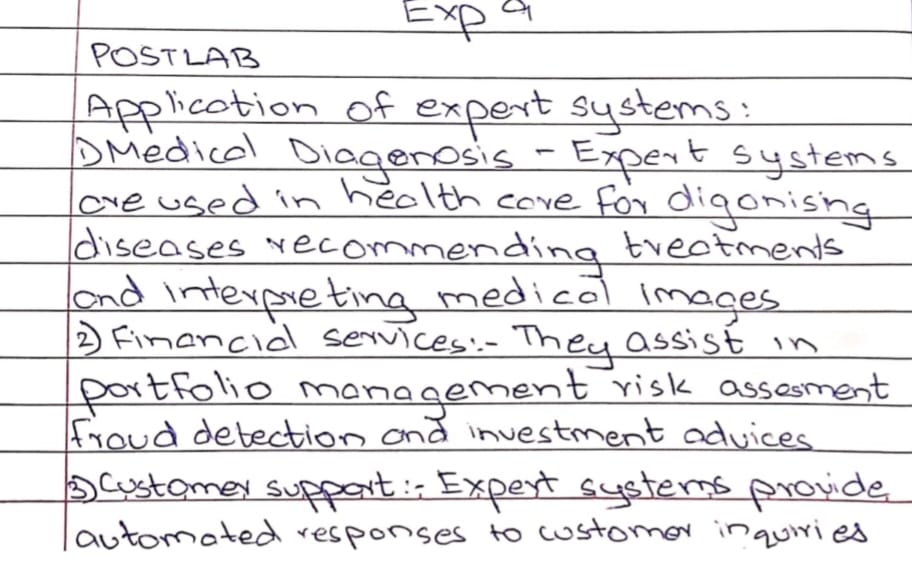 Exp 9
POSTLAB
Application of expert systems:
1) Medical Diagenosis - Expert systems
are used in health care for digonising
diseases recommending treatments
and interpreting medical images
2) Financial services:- They assist in
portfolio management risk assesment
fraud detection and investment advices
3) Customer support:- Expert systems provide
automated responses to customer inquiries